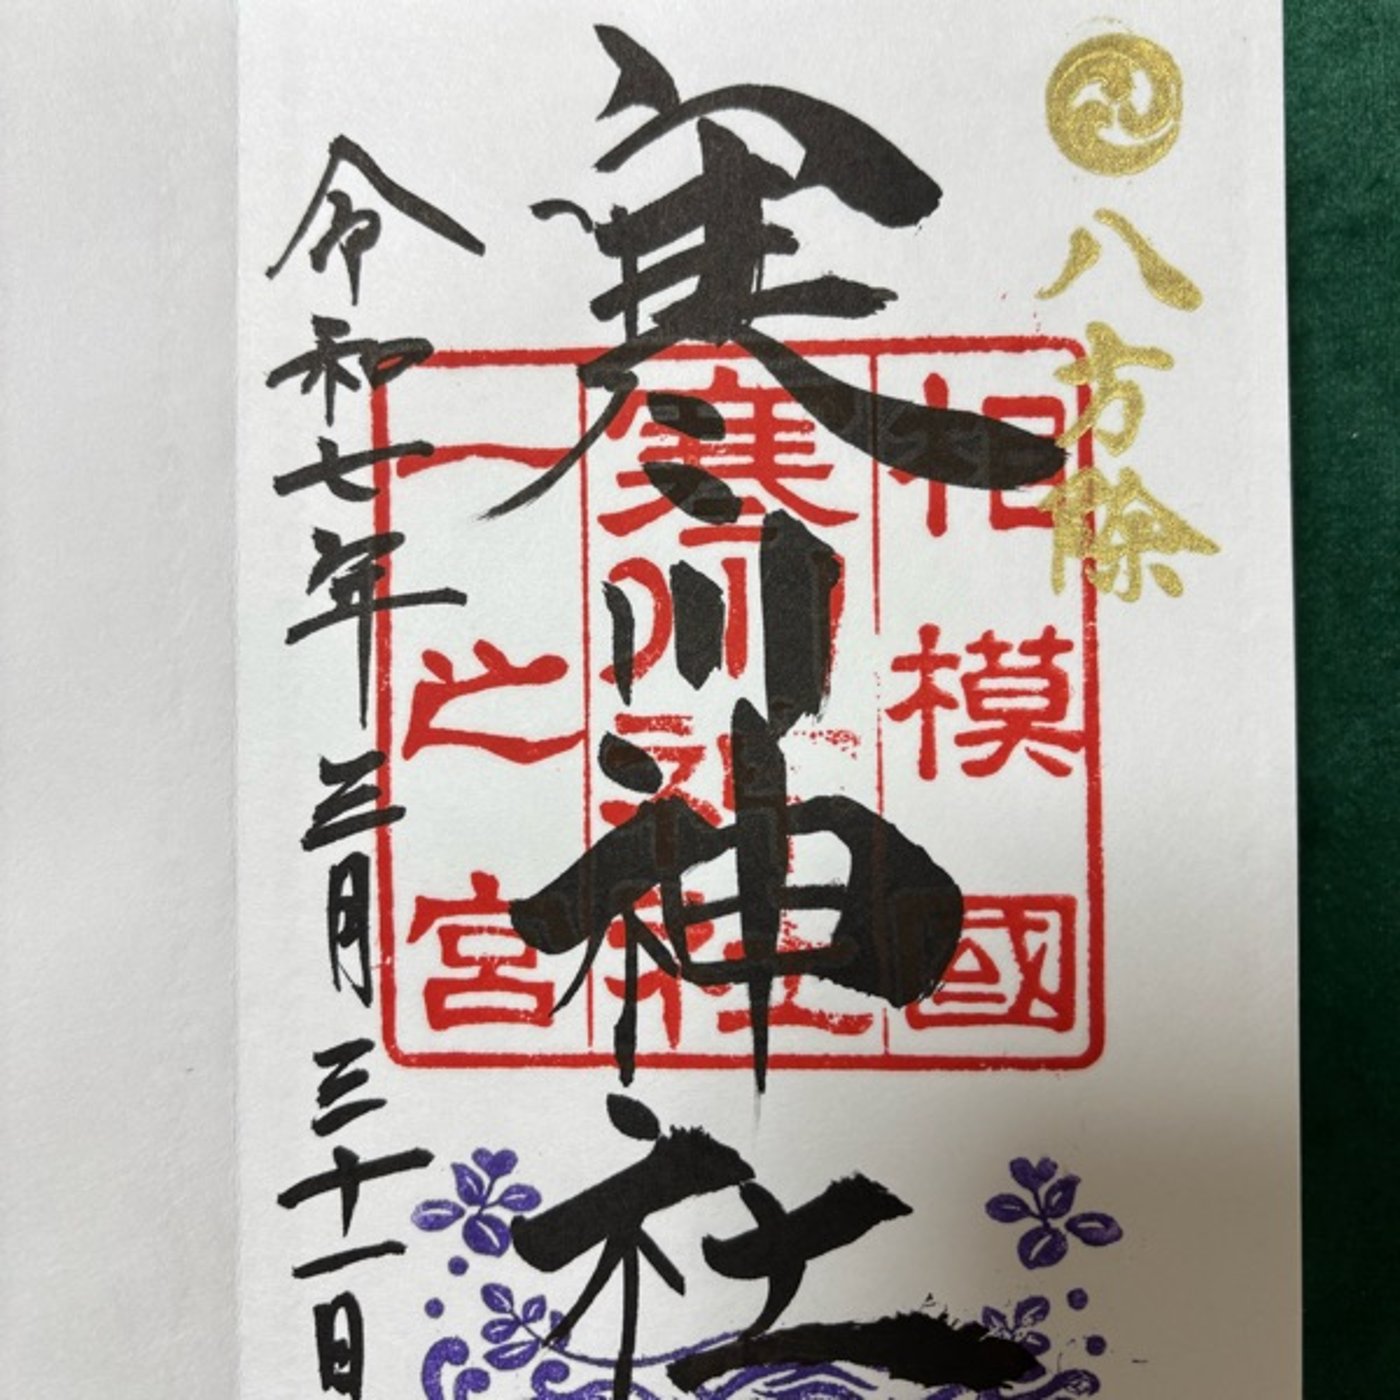 八方除
相模國
寒川神社
一之宮
寒川神社
令和七年三月三十一日